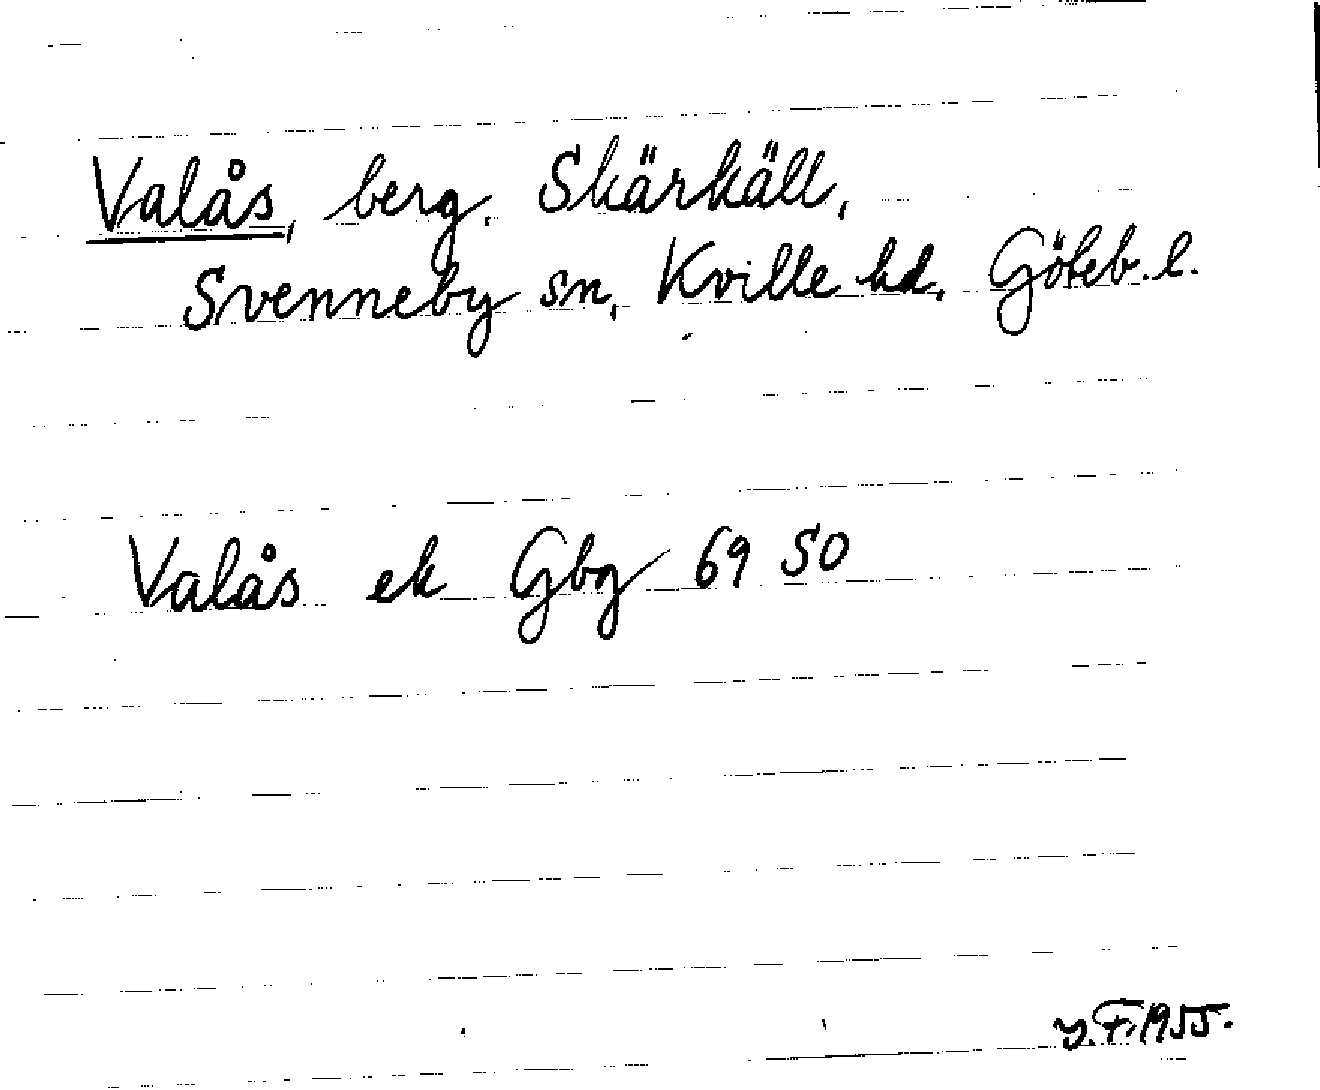 Valås, berg. Skärkäll,
Svenneby sn, Kville hd, Göteb. l.
Valås ek Gbg 69 SO
y. F. 1955.